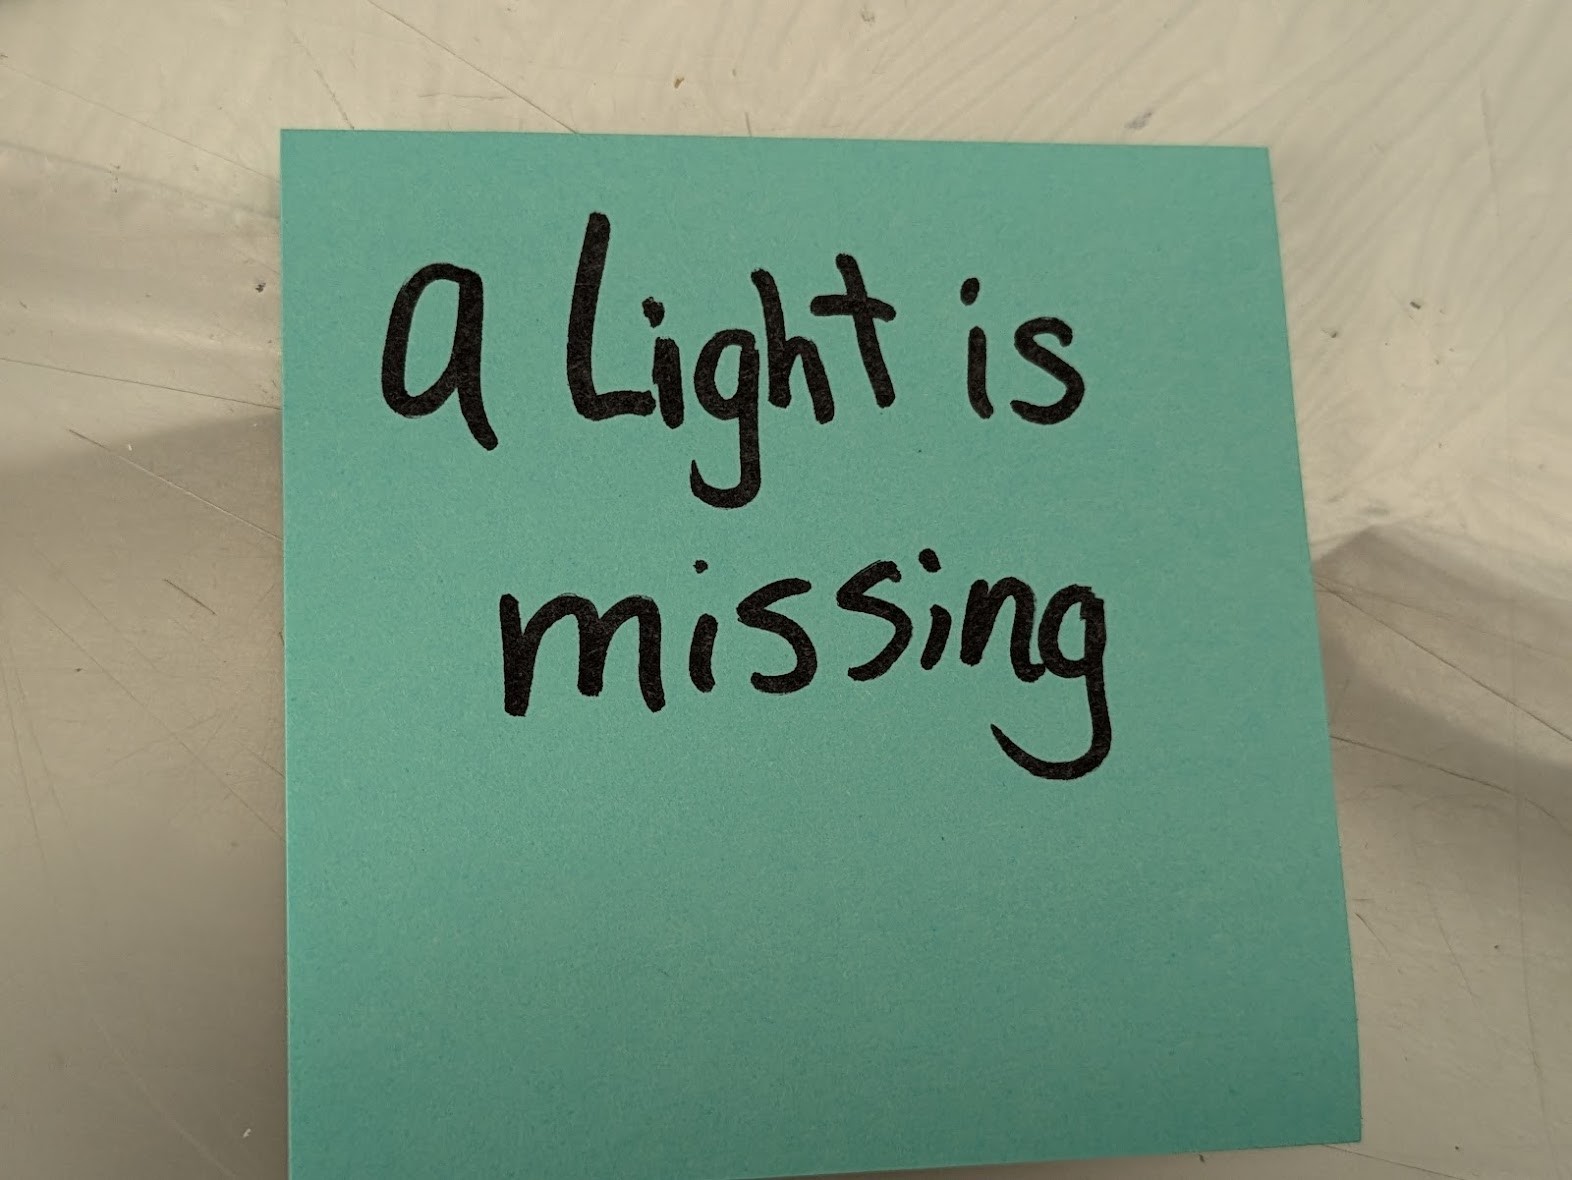 a Light is
missing